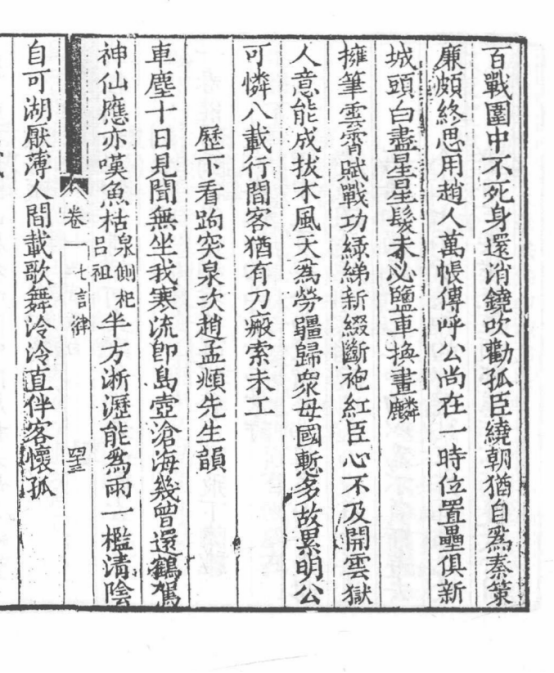 百戰圍中不死身還消鐃吹勸孤臣繞朝猶自爲秦策
廉頗終思用趙人萬帳傳呼公尚在一時位置壘俱新
城頭白盡星星髮未必鹽車換畫麟
擁筆雲霄賦戰功綠綈新綴斷袍紅臣心不及開雲獄
人意能成拔木風天為勞疆歸衆母國慙多故累明公
可憐八載行間客猶有刀瘢索未工
歷下看趵突泉次趙孟頫先生韻
車塵十日見聞無坐我寒流卽島壺滄海幾曾還鶴駕
神仙應亦嘆魚枯泉側祀呂祖半方淅瀝能為雨一檻清陰
卷一 七言律 四三
自可湖厭薄人間載歌舞泠泠直伴客懷孤